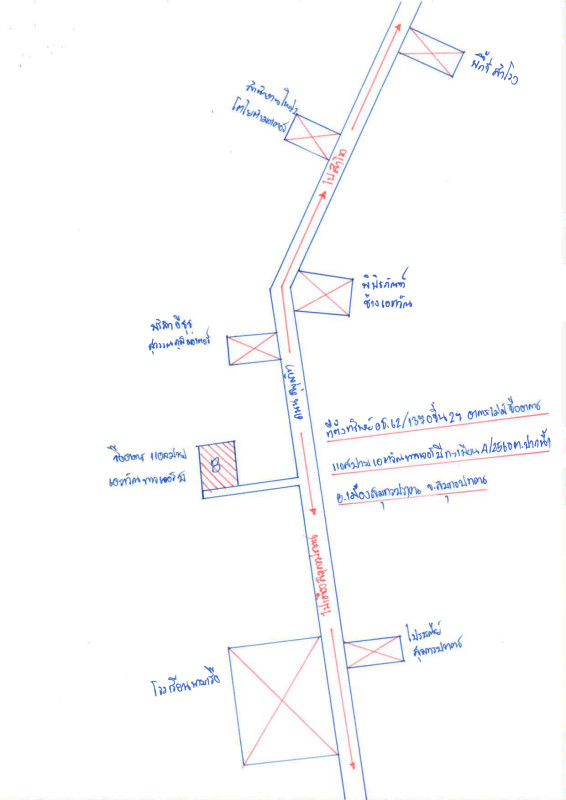 บิ๊กซี สำโรง
สำนักงานใหญ่
โตโยต้ามอเตอร์
ไปสำโรง
พิพิธภัณฑ์
ช้างเอราวัณ
บริษัท อีซูซุ
สุวรรณภูมิมอเตอร์
ถนนสุขุมวิท
ที่ตั้งทรัพย์ อช.62/1390 ชั้น 29 อาคารไม่มี ชื่ออาคาร
แอสปาย เอราวัณ ทาวเวอร์ บี ทะเบียน A/2560 ต.ปากน้ำ
อ.เมืองสมุทรปราการ จ.สมุทรปราการ
ชื่ออาคาร แอสปาย
เอราวัณ ทาวเวอร์ บี
B
ไปเมืองสมุทรปราการ
ไปรษณีย์
สมุทรปราการ
โรงเรียนนายเรือ